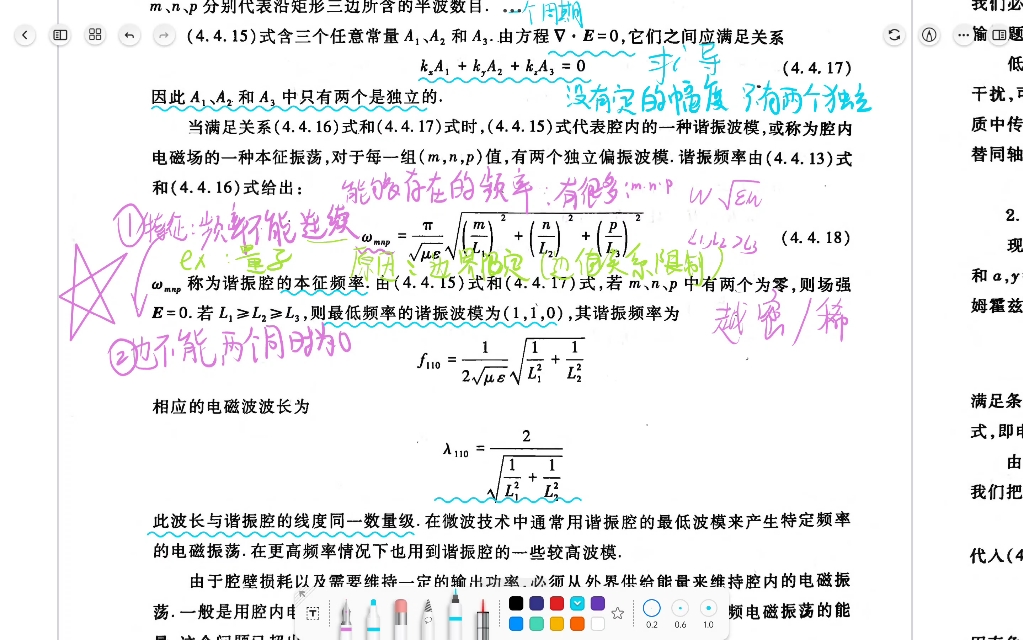 m、n、p 分别代表沿矩形三边所含的半波数目.
一个周期
(4.4.15)式含三个任意常量 A₁、A₂ 和 A₃. 由方程 ∇·E=0,它们之间应满足关系
kₓA₁ + k_yA₂ + k_zA₃ = 0 (4.4.17)
求 导
因此 A₁、A₂ 和 A₃ 中只有两个是独立的.
没有定的幅度 了有两个独立
当满足关系(4.4.16)式和(4.4.17)式时,(4.4.15)式代表腔内的一种谐振波模,或称为腔内
电磁场的一种本征振荡,对于每一组(m,n,p)值,有两个独立偏振波模. 谐振频率由(4.4.13)式
和(4.4.16)式给出:
能够存在的频率:有很多:m·n·p
①特征:频率不能连续
ω_mnp = π/√με √((m/L₁)² + (n/L₂)² + (p/L₃)²) (4.4.18)
ex:量子
ω_mnp 称为谐振腔的本征频率. 由(4.4.15)式和(4.4.17)式,若 m、n、p 中有两个为零,则场强
E=0. 若 L₁≥L₂≥L₃,则最低频率的谐振波模为(1,1,0),其谐振频率为
越密/稀
②也不能两个同时为0
f₁₁₀ = 1/(2√με) √(1/L₁² + 1/L₂²)
相应的电磁波波长为
λ₁₁₀ = 2/√(1/L₁² + 1/L₂²)
此波长与谐振腔的线度同一数量级. 在微波技术中通常用谐振腔的最低波模来产生特定频率
的电磁振荡. 在更高频率情况下也用到谐振腔的一些较高波模.
由于腔壁损耗以及需要维持一定的输出功率,必须从外界供给能量来维持腔内的电磁振
荡. 一般是用腔内电
频电磁振荡的能
0.2 0.6 1.0
我们必
输
题
低
干扰,可
质中传
替同轴
2.
现
和 a,y
姆霍兹
满足条
式,即电
由
我们把
代入(4